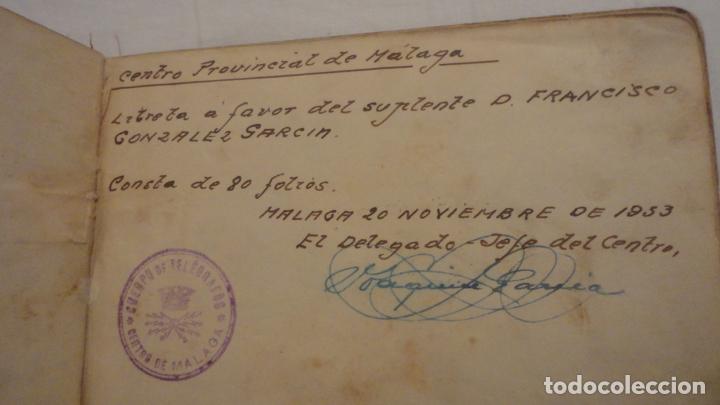 Centro Provincial de Málaga
Libreta a favor del suplente D. FRANCISCO
GONZALEZ GARCIA.
Consta de 80 folios.
MALAGA 20 NOVIEMBRE DE 1953
El Delegado-Jefe del Centro,
Joaquin Garcia
CUERPO DE TELÉGRAFOS
CENTRO DE MALAGA
todocoleccion
todocoleccion.net